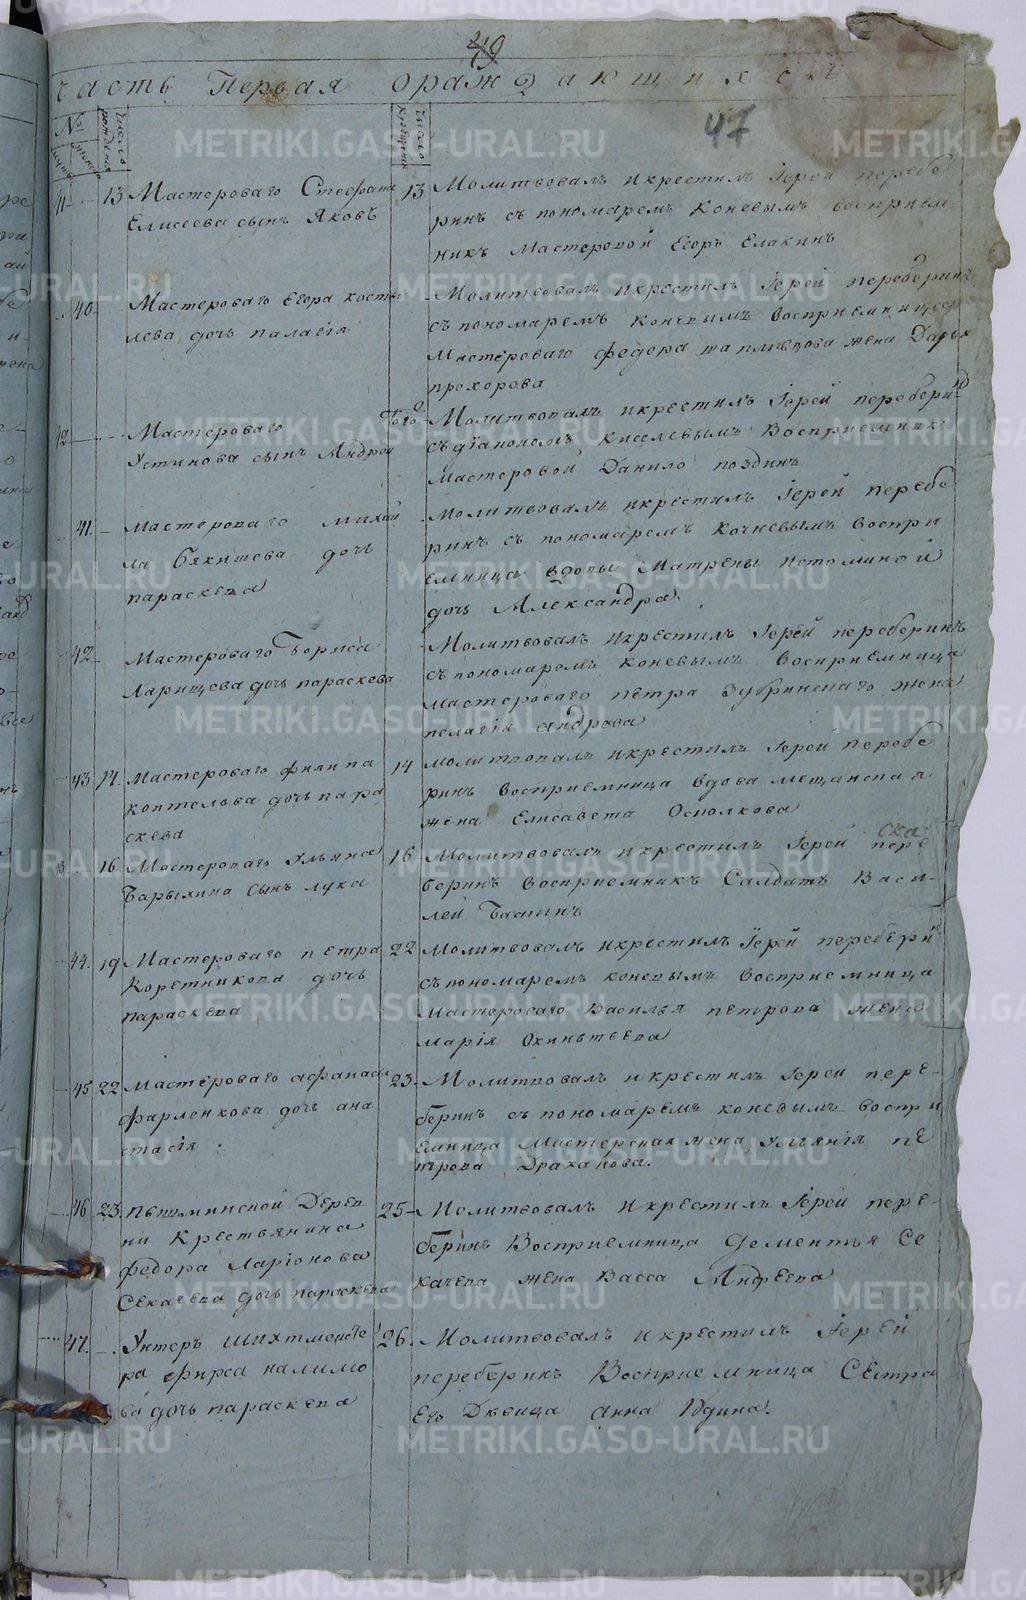 49
часть Первая оражДающихся
47
№
мужеска
женска
Число рождения
Число крещения
41 13 Мастероваго Стефана
Елисеева сынъ Яковъ
13 Молитвовалъ икрестилъ Іерей перебе
ринъ съ пономаремъ Коневымъ восприем
никъ Мастеровой Егоръ Елакинъ
40 Мастероваго Егора косты
лева дочь палагія
Молитвовалъ икрестилъ Іерей переберинъ
съ пономаремъ Коневымъ Восприемница
Мастероваго федора шаплевцова жена Дарья
прохорова
42 Мастероваго
Устинова сынъ Андрей
Того
Молитвовалъ икрестилъ Іерей переберинъ
съ діакономъ Киселевымъ Восприемникъ
мастеровой Данило поздинъ
41 мастероваго михай
ла Бякишева дочь
параскева
молитвовалъ икрестилъ Іерей перебе
ринъ съ пономаремъ Кочневымъ воспри
емница вдовы Матрены потоминой
дочь Александра
42 Мастероваго Бориса
Ларищева дочь параскева
Молитвовалъ икрестилъ Іерей переберинъ
съ пономаремъ Коневымъ Восприемница
мастероваго петра Зубринскаго жена
пелагія андрова
43 14 Мастероваго филипа
коптелова дочь пара
скева
14 молитвовалъ икрестилъ Іерей перебе
ринъ восприемница вдова мещанская
жена Елисавета Осполкова
16 Мастероваго Ульяна
Барыхина сынъ лука
16 Молитвовалъ икрестилъ Іерей пере
беринъ восприемникъ Салдатъ Васи
лей Башинъ
44 19 Мастероваго петра
Коретникова дочь
параскева
22 молитвовалъ икрестилъ Іерей переберинъ
съ пономаремъ коневымъ восприемница
мастероваго Василья петрова жена
марія Окинтьева
45 22 мастероваго афанасья
фарленкова дочь ана
стасія
23 Молитвовалъ икрестилъ Іерей пере
беринъ съ пономаремъ коневымъ воспри
емница Мастерская жена Ульянія пе
трова Драханова.
46 23 пышминской Дерев
ни Крестьянина
федора Ларіонова
Секачева дочь параскева
25 Молитвовалъ икрестилъ Іерей пере
беринъ Восприемница Дементья Се
качева жена Васса Андреева
47 Унтеръ Шихтмейсте
ра фирса налимо
ва дочь параскева
26 Молитвовалъ икрестилъ Іерей
переберинъ Восприемница СЕстра
Его Девица Анна
METRIKI.GASO-URAL.RU